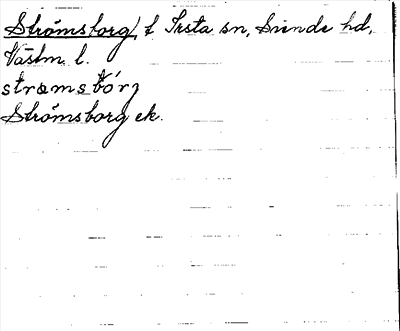 Strömsborg, f Irsta sn, Siende hd,
Västm. l.
strömsbórj
Strömsborg ek.